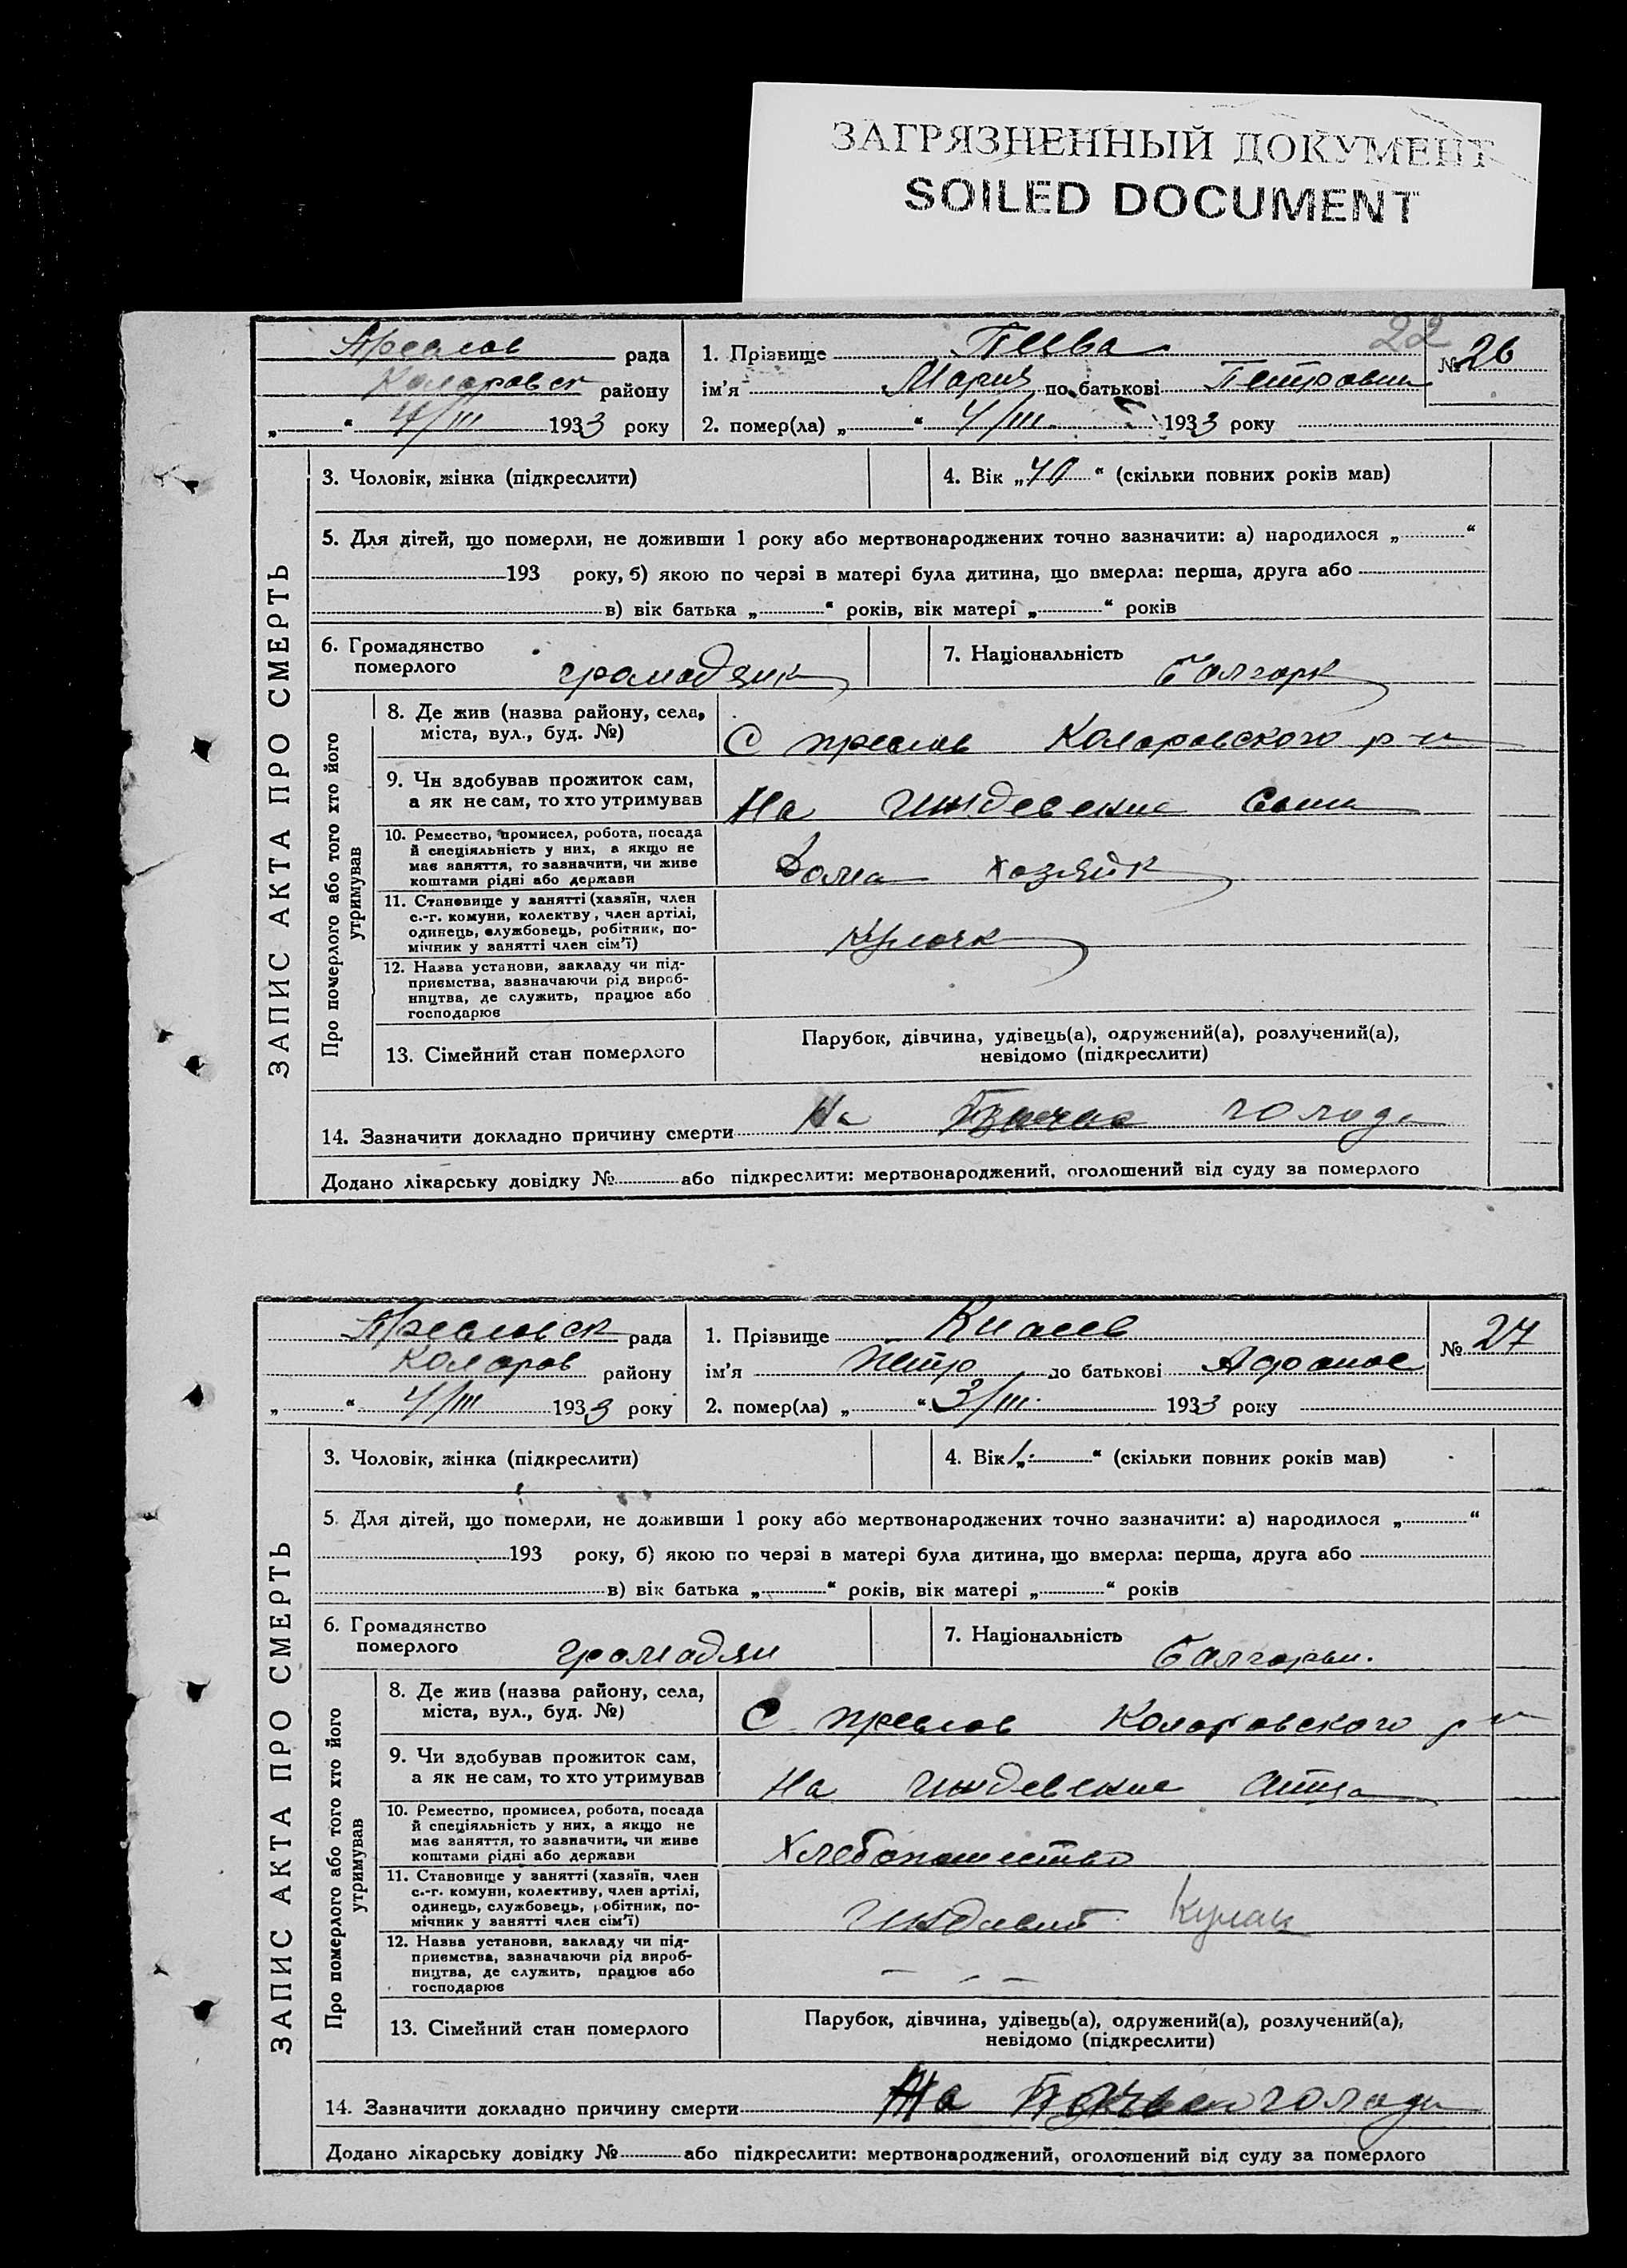 ЗАГРЯЗНЕННЫЙ ДОКУМЕНТ
SOILED DOCUMENT
22
Преслав рада
Коларовск району
„ “ 4/III 1933 року
1. Прізвище № 26
ім'я Мария по батькові Петровн
2. помер(ла) „ “ 4/III 1933 року
ЗАПИС АКТА ПРО СМЕРТЬ
3. Чоловік, жінка (підкреслити)
4. Вік „70“ (скільки повних років мав)
5. Для дітей, що померли, не доживши 1 року або мертвонароджених точно зазначити: а) народилося „ “
193 року, б) якою по черзі в матері була дитина, що вмерла: перша, друга або
в) вік батька „ “ років, вік матері „ “ років
6. Громадянство
померлого громадянк
7. Національність болгарк
Про померлого або того хто його
утримував
8. Де жив (назва району, села,
міста, вул., буд. №)
С преслав Коларовского р-н
9. Чи здобував прожиток сам,
а як не сам, то хто утримував
На иждевение сына
10. Ремество, промисел, робота, посада
й спеціяльність у них, а якщо не
має заняття, то зазначити, чи живе
коштами рідні або держави
Дома хозяйк
11. Становище у занятті (хазяїн, член
с.-г. комуни, колектву, член артілі,
одинець, службовець, робітник, по-
мічник у занятті член сім'ї)
12. Назва установи, закладу чи під-
приємства, зазначаючи рід вироб-
ництва, де служить, працює або
господарює
13. Сімейний стан померлого
Парубок, дівчина, удівець(а), одружений(а), розлучений(а),
невідомо (підкреслити)
14. Зазначити докладно причину смерти На почве голода
Додано лікарську довідку № або підкреслити: мертвонароджений, оголошений від суду за померлого
Преславск рада
Коларов району
„ “ 4/III 1933 року
1. Прізвище № 27
ім'я Петр по батькові Афонас
2. помер(ла) „ “ 3/III 1933 року
ЗАПИС АКТА ПРО СМЕРТЬ
3. Чоловік, жінка (підкреслити)
4. Вік „1“ (скільки повних років мав)
5. Для дітей, що померли, не доживши 1 року або мертвонароджених точно зазначити: а) народилося „ “
193 року, б) якою по черзі в матері була дитина, що вмерла: перша, друга або
в) вік батька „ “ років, вік матері „ “ років
6. Громадянство
померлого громадян
7. Національність болгарин.
Про померлого або того хто його
утримував
8. Де жив (назва району, села,
міста, вул., буд. №)
С преслав Коларовского р н
9. Чи здобував прожиток сам,
а як не сам, то хто утримував
На иждевение отца
10. Ремество, промисел, робота, посада
й спеціяльність у них, а якщо не
має заняття, то зазначити, чи живе
коштами рідні або держави
Хлебопашество
11. Становище у занятті (хазяїн, член
с.-г. комуни, колективу, член артілі,
одинець, службовець, робітник, по-
мічник у занятті член сім'ї)
Кулак
12. Назва установи, закладу чи під-
приємства, зазначаючи рід вироб-
ництва, де служить, працює або
господарює
— — —
13. Сімейний стан померлого
Парубок, дівчина, удівець(а), одружений(а), розлучений(а),
невідомо (підкреслити)
14. Зазначити докладно причину смерти На почве голода
Додано лікарську довідку № або підкреслити: мертвонароджений, оголошений від суду за померлого